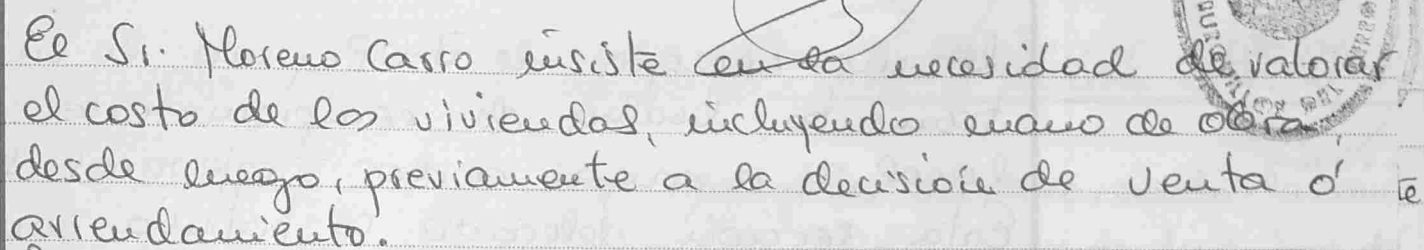 El Sr. Moreno Carro insiste en la necesidad de valorar
el costo de las viviendas, incluyendo mano de obra,
desde luego, previamente a la decisión de venta ó
arrendamiento.